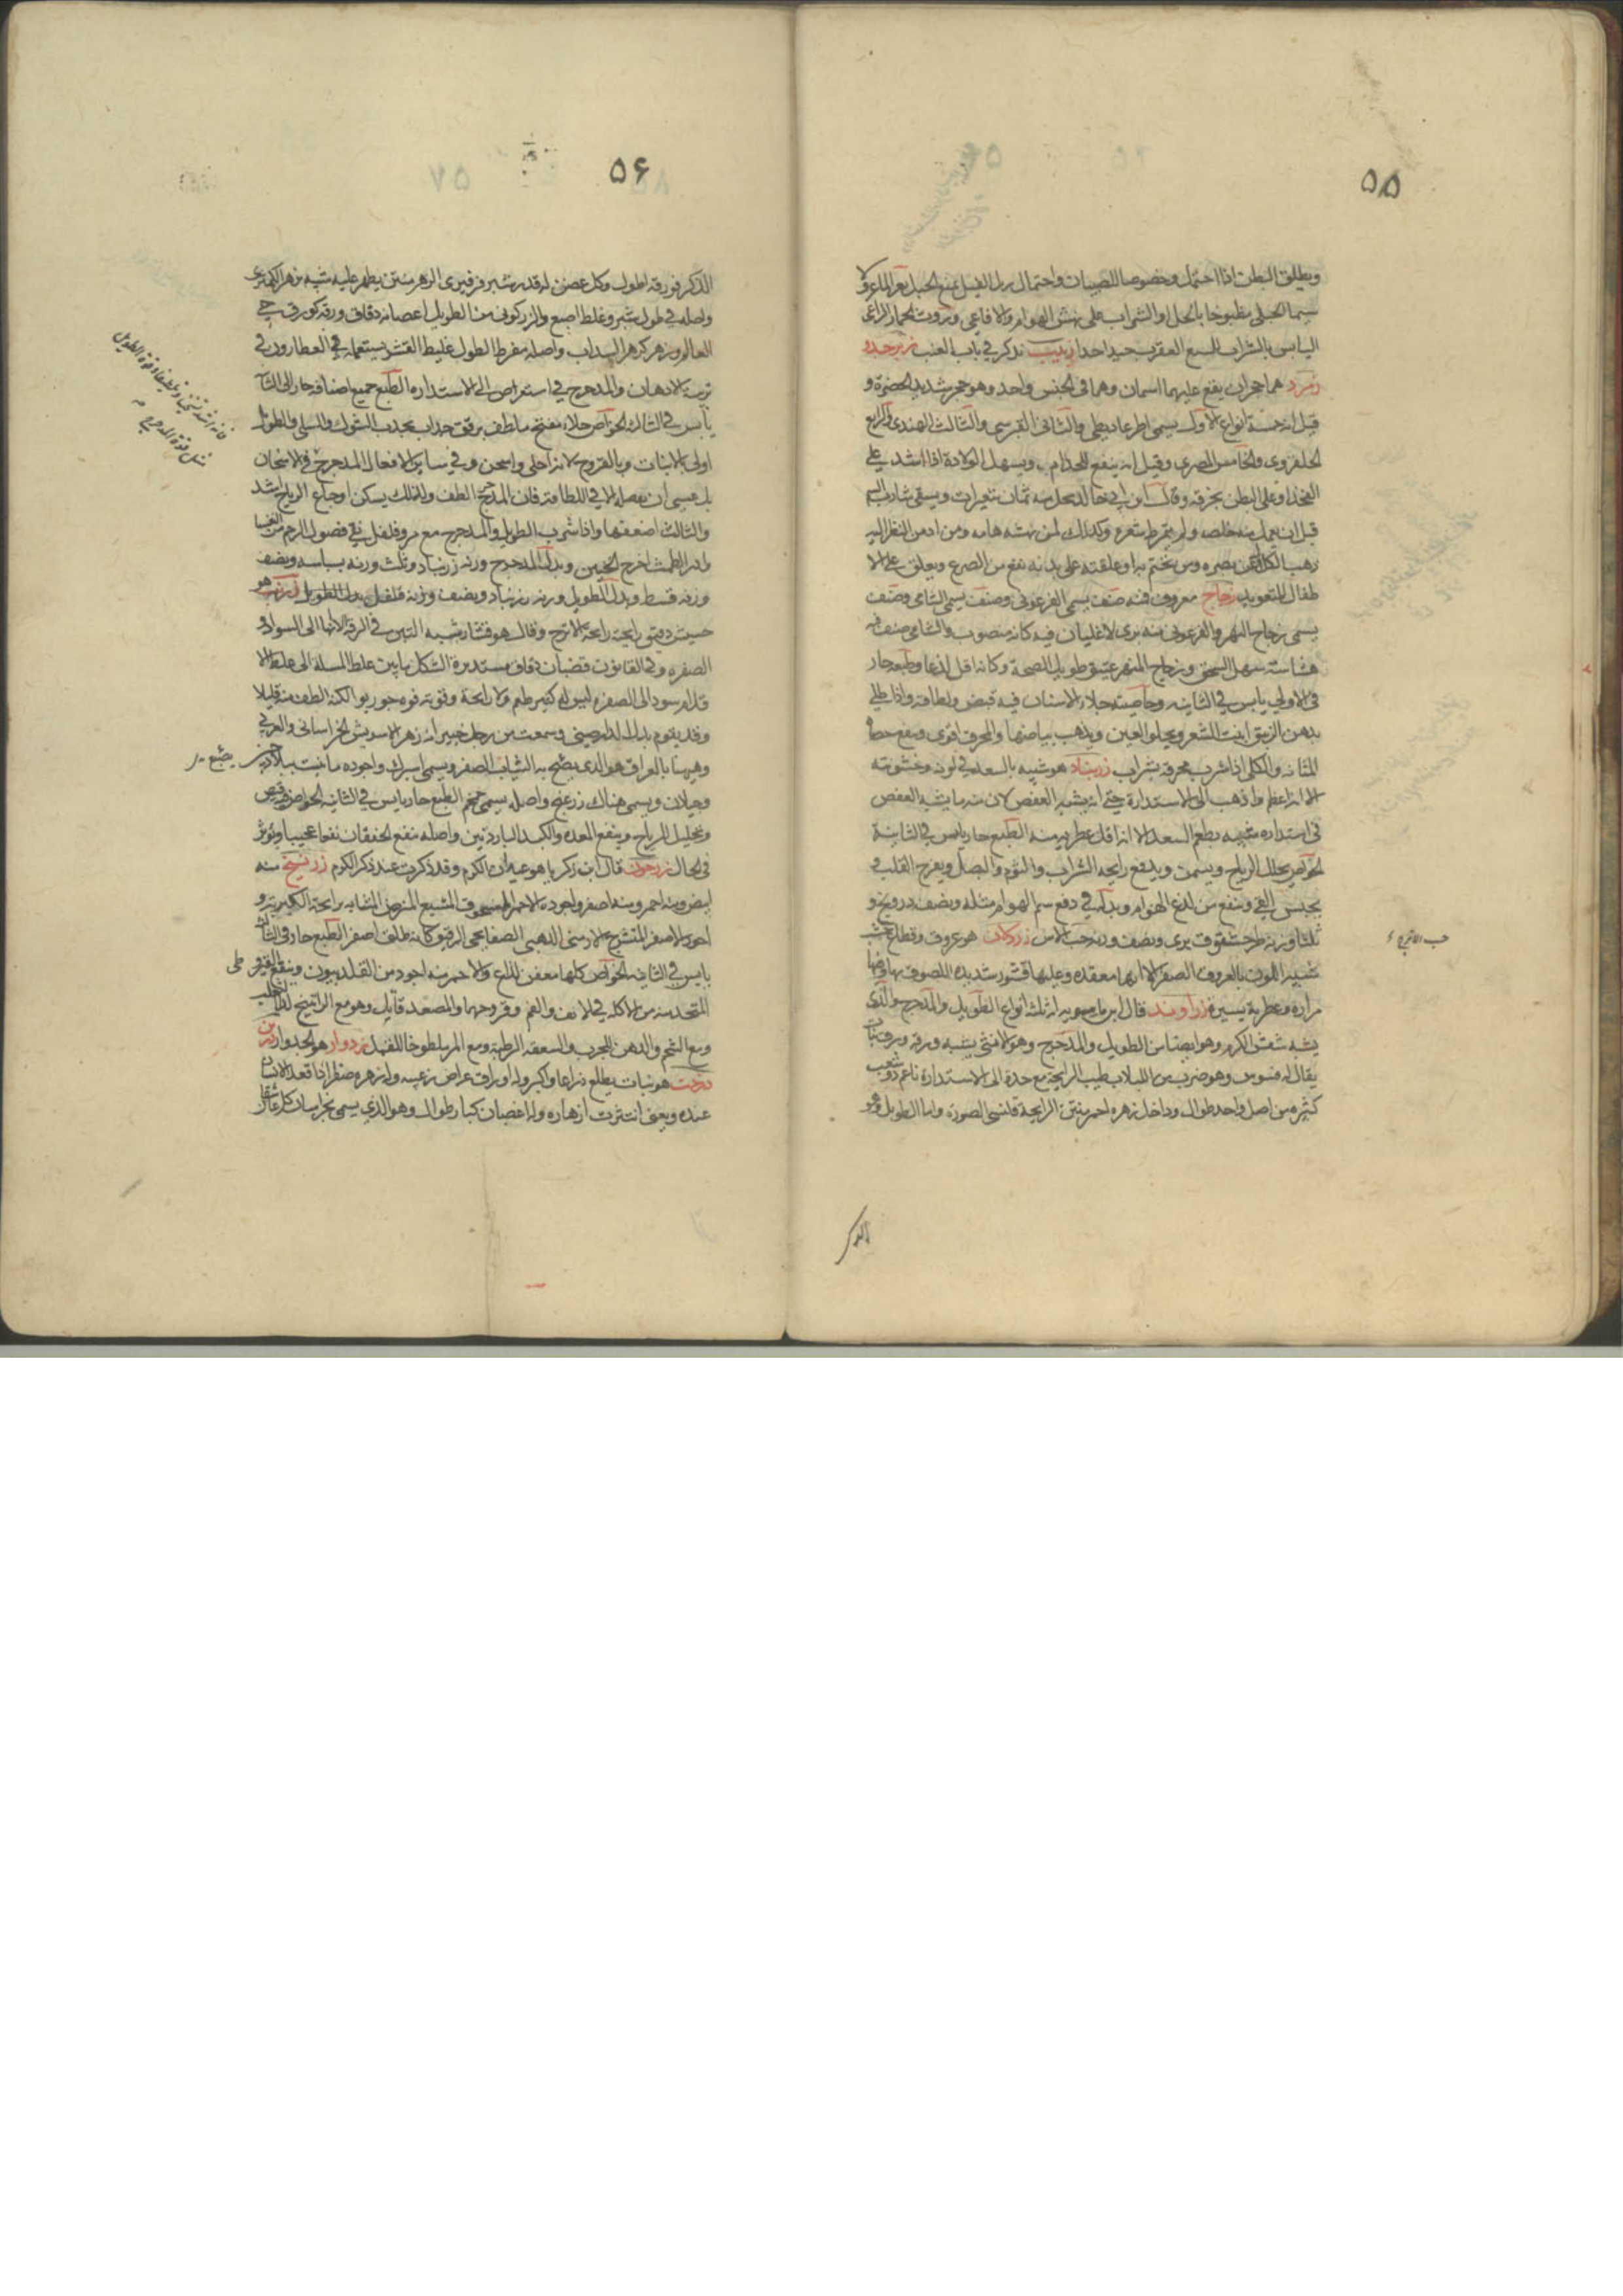 ۵۵
ويطلق البطن اذا احتمل وخصوصا للصبيان واحتمال زبل الفيل يمنع الحبل بعر الماعز ولا
سيما الجبلى مطبوخا بالخل او الشراب على نهش الهوام والافاعى وروث الحمار الراعى
اليابس بالشراب للسع العقرب جيد احدا زبيب نذكر في باب العنب زبرجد و
زمرد هما حجران يقع عليهما اسمان وهما فى الجنس واحد وهو حجر شديد الخضرة و
قيل انه خمسة انواع الاول يسمى والثانى القبرسى والثالث الهندى والرابع
والخامس المصرى وقيل انه ينفع للجذام ويسهل الولادة اذا شد على
الفخذ او على البطن بخرقة وقال ابن ابي خالد يحل منه ثمان شعيرات ويسقى شارب السم
قبل ان يعمل فيه خلصه ولم يتمرط شعره وكذلك لمن نهشه هامه ومن ادمن النظر اليه
ذهب الكلال عن بصره ومن تختم به او علقه على بدنه نفع من الصرع ويعلق على الا
طفال للتعويذ زجاج معروف فمنه صنف يسمى الفرعونى وصنف يسمى الشامى وصنف
يسمى زجاج النهر والفرعونى منه يرى لا غليان فيه كانه منصوب والشامى صنف فيه
هشاشة سهل السحق وزجاج النهر عتيق طويل الصحة وكانه اقل لذعا وطبعه حار
فى الاولى يابس فى الثانيه وخاصيته جلاء الاسنان فيه قبض ولطافة واذا طلي
بدهن الزيبق انبت الشعر ويجلو العين ويذهب بياضها والمحرق اقوى وينفع حصاة
المثانه والكلى اذا شرب محرقه بشراب زرنباد هو شبيه بالسعد فى لونه وخشونته
الا انه اعظم واذهب الى الاستدارة حتى انه يشبه العفص لان منه ما يشبه العفص
فى استداره شبيه بطعم السعد الا انه اقل عطريه منه الطبع حار يابس فى الثانية
الخواص يحلل الرياح ويسمن ويدفع رايحه الشراب والثوم والبصل ويفرح القلب و
يحبس القئ وينفع من لدغ الهوام وبدله فى دفع سم الهوام مثله ونصف درونج و
ثلثا وزنه طرحشقوق برى ونصف وزنه حب الاس زردكان هو عروق وقطاع خشب
شبيه اللون بالعروق الصفر الا انها معقده وعليها قشور شديده اللصوق بها وفيها
مرارة وعطرية يسيرة زراوند قال ابن ماسويه انه ثلثه انواع الطويل والمدحرج والذى
يشبه شقش الكرم وهو ايضا من الطويل والمدحرج وهو الانثى يشبه ورقه ورق نبات
يقال له قسوس وهو ضرب من اللبلاب طيب الرايحة مع حدة الى الاستدارة ناعم ذو شعب
كثيره من اصل واحد طوال وداخل زهره احمر منتن الرايحة قلنسى الصورة واما الطويل وهو
حب الاترج ۶
الذكر
۵۶
الذكر فورقه اطول وكل غصن له قدر شبر فرفيرى الزهر منتن يظهر عليه شبه زهر الكمثرى
واصله فى طول شبر وغلظ اصبع والزركونى من الطويل اغصانه دقاق ورقه كورق حى
العالم وزهر كزهر السداب واصله مفرط الطول غليظ القشر يستعمله العطارون فى
تربية الادهان والمدحرج فى استعراض الى الاستداره الطبع جميع اصنافه حار الى الثالثة
يابس فى الثالثة الخواص جلاء مفتح ملطف مرقق جذاب يجذب الشوك والسلى والطويل
اولى بالانبات وبالقروح لانه احلى واسخن وفى ساير الافعال المدحرج فالاسخان
بل عسى ان يفضله فى اللطافة فان المدحرج الطف ولذلك يسكن اوجاع الرياح اشد
والثالث اضعفها واذا شرب الطويل والمدحرج مع مر وفلفل نقى فضول الرحم من النفسا
وادر الطمث اخرج الجنين وبدل المدحرج وزنه زرنباد وثلث وزنه بسباسه ونصف
وزنه قسط وبدل الطويل وزنه زرنباد ونصف وزنه فلفل بدل الطويل زرنب هو
حشيش دقيق رايحته رايحة الاترج وقال هو قشار شبيه التبن فى الرقة لانها الى السواد و
الصفره وفى القانون قضبان دقاق مستديرة الشكل ما بين غلظ المسلة الى غلظ الا
قلام سود الى الصفره ليس له كثير طعم ولا رائحة وقوته قوه جوزبوا لكنه الطف منه قليلا
وقد يقوم بدل الدارصينى وسمعت من رجل خبير انه زهر الخراسانى والعربى
وهى بالعراق هو الذى يصبغ به الثياب الصفر ويسمى اسبرك واجوده ما نبت ببلاد
وجيلان ويسمى هناك زرغنج واصله يسمى الطبع حار يابس فى الثانيه الخواص قبض
وتحليل للرياح وينفع المعده والكبد الباردتين واصله ينفع الخفقان نفعا عجيبا ويؤثر
فى الحال زرجون قال ابن زكريا هو عيدان الكرم وقد ذكرت عند ذكر الكرم زرنيخ منه
ابيض ومنه احمر ومنه اصفر واجوده الاحمر المسحوق المشبع المنرض المشابه برايحة الكبريت و
اجود الاصفر المتشرح الارمنى الذهبى الصفايحى الرقيق كانه طلق اصفر الطبع حار فى الثالثة
يابس فى الثانيه الخواص كلها معفن لذاع والاحمر منه اجود من القلديون وينفع
المتخذ منه من الاكلة فى الانف والفم وقروحهما والمصعد قاتل وهو مع الراتينج لداء الثعلب
ومع الشحم والدهن للجرب والسعفه الرطبة ومع المر ملطوخا للقمل زردوار هو الجدوار زرين
درخت هو نبات يطلع ذراعا واكثر وله اوراق عراض وله زهر اصفر اذا قعد الانسان
عنده انتثرت ازهاره وله اغصان كبار طوال وهو الذى يسمى بخراسان كل عاشقان
يصبغ